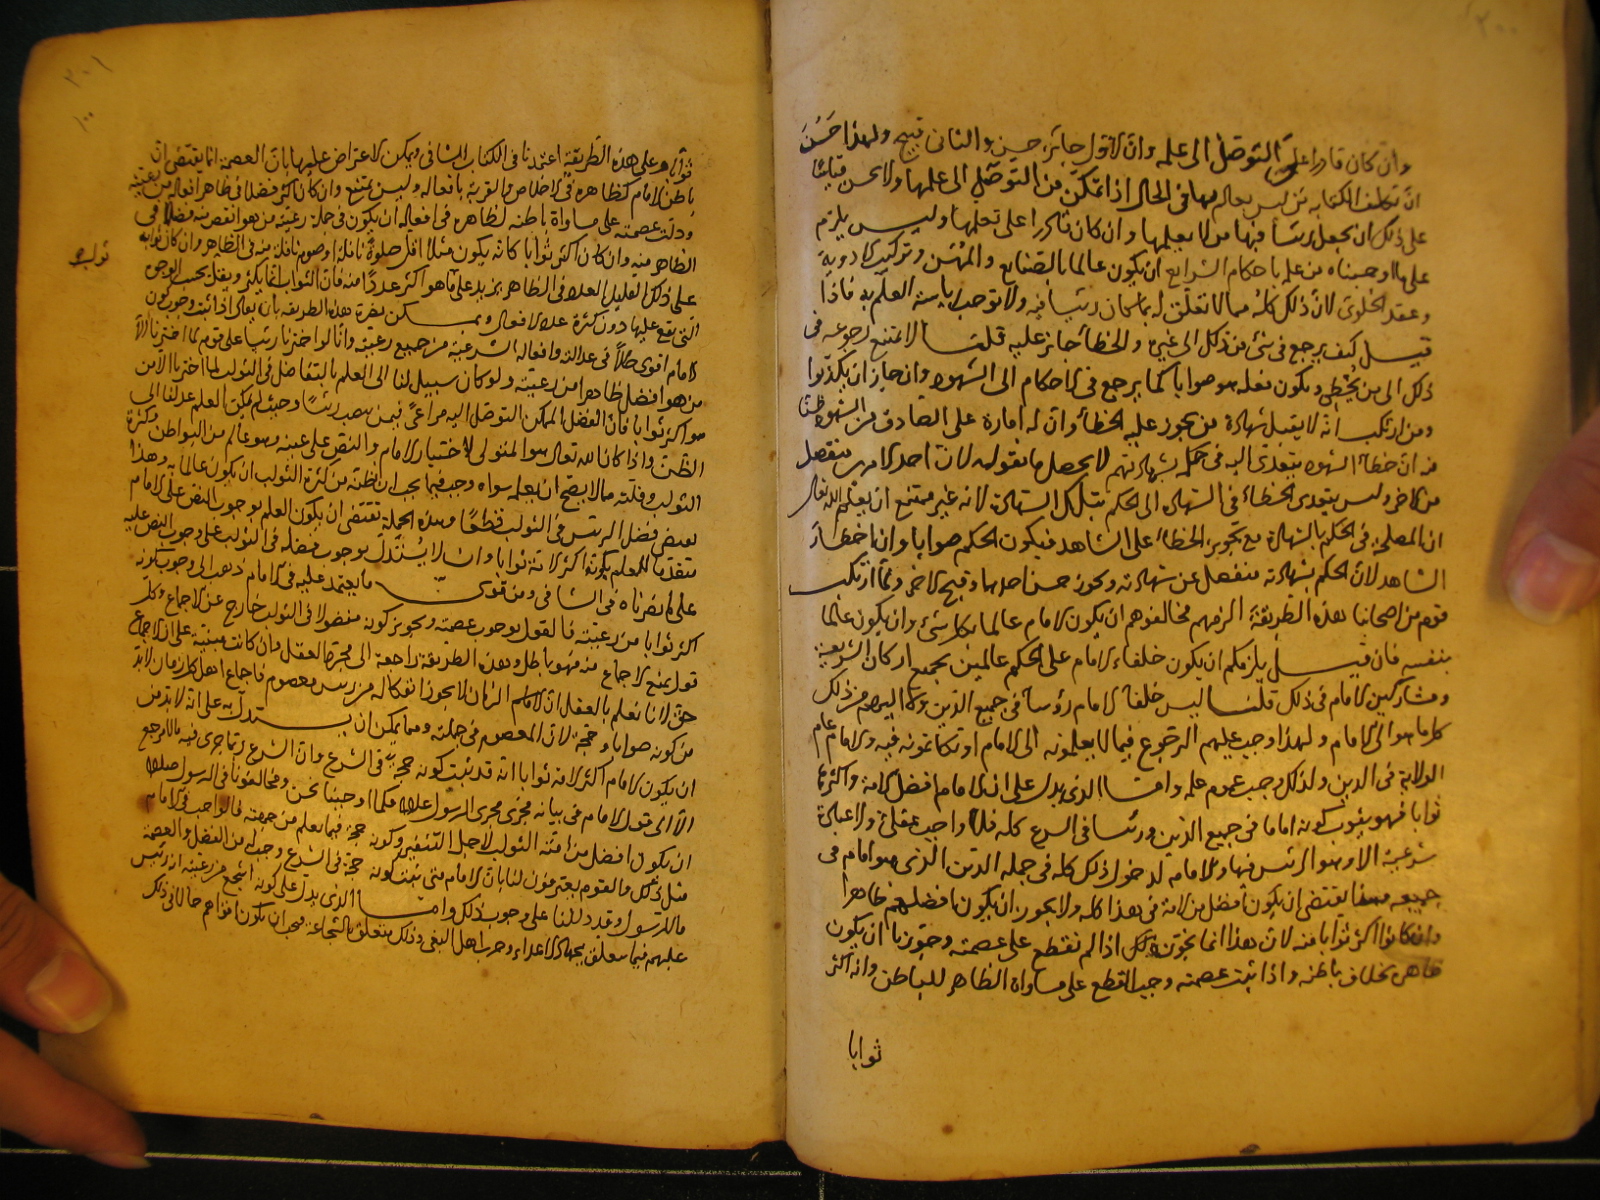 ٣٠٠
وان كان قادرا على التوصل الى علمه وان الاول جائز حسن والثاني قبيح ولهذا حَسُنَ
ان تكلف الكتابة من ليس بعالم بها في الحال اذا تمكن من التوصل الى علمها ولا يحسن قياسًا
على ذلك ان يجعل رئيسا فيها من لا يعلمها وان كان قادرا على تعلمها وليس يلزم
على ما اوجبناه من علمه باحكام الشرايع ان يكون عالما بالصنايع والمهن وتركيب الادوية
وعقد الحلوى لان ذلك كله مما لا تعلق له بما كان رئيسا فيه ولا توجب رياسته العلم به فاذا
قيل كيف يرجع في شيء من ذلك الى غيره والخطأ جائز عليه قلنا لا يمتنع رجوعه في
ذلك الى من يُخطى ويكون فعله هو صوابا كما يرجع في الاحكام الى الشهود وان جاز ان يكذبوا
ومن ارتكب انه لا يقبل شهادة من يجوز عليه الخطأ وان له امارة على الصادق من الشهود ظنًا
منه ان خطأ الشهود يتعدى اليه في حكمه بشهادتهم لا يحصل ما نقوله لان احد الامرين منفصل
من الاخر وليس يتعدى الخطاء في الشهادة الى الحكم بتلك الشهادة لانه غير ممتنع ان يعلم الله تعالى
ان المصلحة في الحكم بالشهادة مع تجويز الخطاء على الشاهد فيكون الحكم صوابا وان اخطأ
الشاهد لان الحكم بشهادته منفصل عن شهادته ويجوز حسن احدهما وقبح الاخر وربما ارتكب
قوم من اصحابنا بهذه الطريقة الزمهم مخالفوهم ان يكون الامام عالما بكل شئ وان يكون عالما
بنفسه فان قيل يلزمكم ان يكون خلفاء الامام على الحكم عالمين بجميع اركان الشريعة
ومشاركين للامام في ذلك قلنا ليس خلفاء الامام رؤسا في جميع الدين ولا اليهم من ذلك
كل ما هو الى الامام ولهذا وجب عليهم الرجوع فيما لا يعلمونه الى الامام او تكاتبونه فيه والامام عام
الولاية في الدين ولذلك وجب عموم علمه وامــا الذي يدل على ان الامام افضل الامة واكثرها
ثوابا فهو ثبوت كونه اماما في جميع الدين ورئيسا في الشرع كله فلا واجب عقلي ولا عبادة
شرعية الا وهو الرئيس فيها والامام لدخول ذلك كله في جمله الدين الذي هو امام في
جميعه وهذا يقتضى ان يكون افضل من الامة في هذا كله ولا يجوز ان يكون افضلهم ظاهرا
وان كانوا اكثر ثوابا منه لان هذا انما يجوز ذلك اذا لم نقطع على عصمته وجوزنا ان يكون
ظاهره بخلاف باطنه واذا ثبت عصمته وجب القطع على مساواة الظاهر للباطن وانه اكثر
ثوابا
٣٠١
١٠٠
ثوابا وعلى هذه الطريقة اعتمدنا في الكتاب الشافي ويمكن الاعتراض عليها بان العصمة انما يقتضى ان
باطن الامام كظاهره في الاخلاص والقربة بافعاله وليس يمتنع وان كان اكثر فضلا في ظاهر افعاله من رعيته
ودلت عصمته على مساواة باطنه لظاهره في افعاله ان يكون في جملة رعيته من هو انقص منه فضلا في
الظاهر منه وان كان اكثر ثوابا كانه يكون مثلا اقل صلوة نافلة او صوم نافلة منه في الظاهر وان كان ثوابه
ثوابه
على ذلك القليل العدد في الظاهر يزيد على ما هو اكثر عددا منه فان الثواب انما يكثر ويقل بحسب الوجوه
التي يقع عليها دون كثرة عدد الافعال ويمكن نصرة هذه الطريقة بان يقال اذا ثبت وجوب كون
الامام اقوى حالا في عدالته وافعاله الشرعية من جميع رعيته وانا لو اخترنا رئيسا على قوم لما اخترنا الا
من هو افضل ظاهرا من رعيته ولو كان سبيل لنا الى العلم بالتفاضل في الثواب لما اخترنا الا من
هو اكثر ثوابا فان الفضل الممكن التوصل اليه مراعى فيمن ينصب رئيسا وحيث لم يمكن العلم عدلنا الى
الظن واذا كان الله تعالى هو المتولى لاختيار الامام والنص على عينه وهو عالم من البواطن وكثرة
الثواب وقلته ما لا يصح ان يعلمه سواه وجب فيما يجب ان نظنه من كثرة الثواب ان يكون عالما به وهذا
يقتضي فضل الرئيس في الثواب قطعًا وهذه الجملة تقتضى ان يكون العلم بوجوب النص على الامام
متقدما للعلم بكونه اكثر الامة ثوابا وان لا يُستدل بوجوب فضله في الثواب على وجوب النص عليه
على ما نصرناه في الشافي ومن قوى ما يعتمد عليه في الامام ذهب الى وجوب كونه
اكثر ثوابا من رعيته فالقول بوجوب عصمته وتجويز كونه مفضولا في الثواب خارج عن الاجماع وكل
قول يمنع الاجماع منه فهو باطل وهذه الطريقة راجعة الى مجرد العقل وان كانت مبنية على ان الاجماع
حق لانا نعلم بالعقل ان الامام الزمان لا يجوز انفكاكه من رئيس معصوم فاجماع اهل كل زمان لابد
من كونه صوابا وحجة لان المعصوم في جملته ومما يمكن ان يستدل به على انه لابد من
ان يكون الامام اكثر الامة ثوابا انه قد ثبت كونه حجة في الشرع وان الشرع ربما جرى فيه ما لا يرجع
الا الى قول الامام في بيانه فجرى مجرى الرسول علاه فكما اوجبنا نحن ومخالفونا في الرسول صلعم
ان يكون افضل من امته الثواب لاجل التنفير وكونه حجة فيما يعلم من جهته فالواجب في الامام
مثل ذلك والقوم يعترفون لنا بان الامام متى ثبت كونه حجة في الشرع وجب له من الفضل والعصمة
ما للرسول وقد دللنا على وجوب ذلك وامــا الذي يدل على كونه اشجع من رعيته انه رئيس
عليهم فيما يتعلق بجهاد الاعداء وحرب اهل البغي وذلك متعلق بالشجاعة فيجب ان يكون اقواهم حالا في ذلك